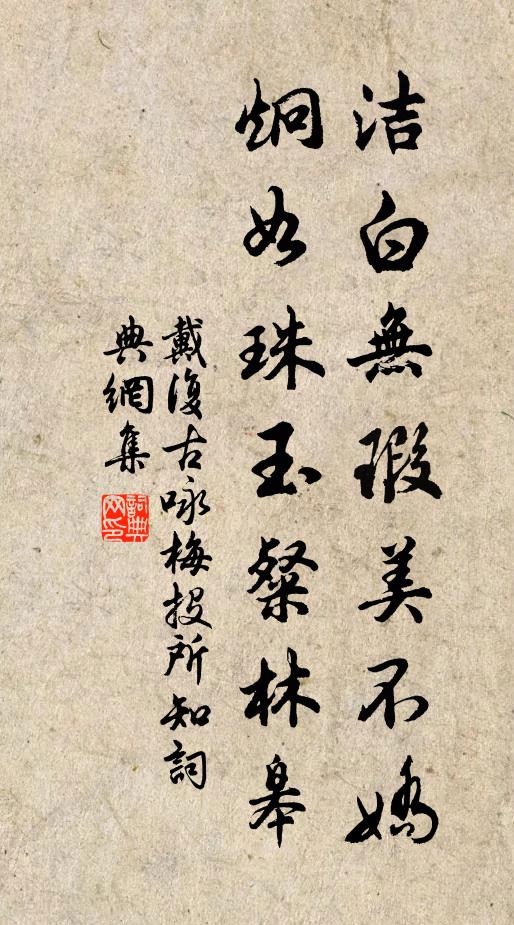 洁白無瑕美不嬌
炯如珠玉粲林皋
戴復古咏梅投所知詞
典網集
詞典網印